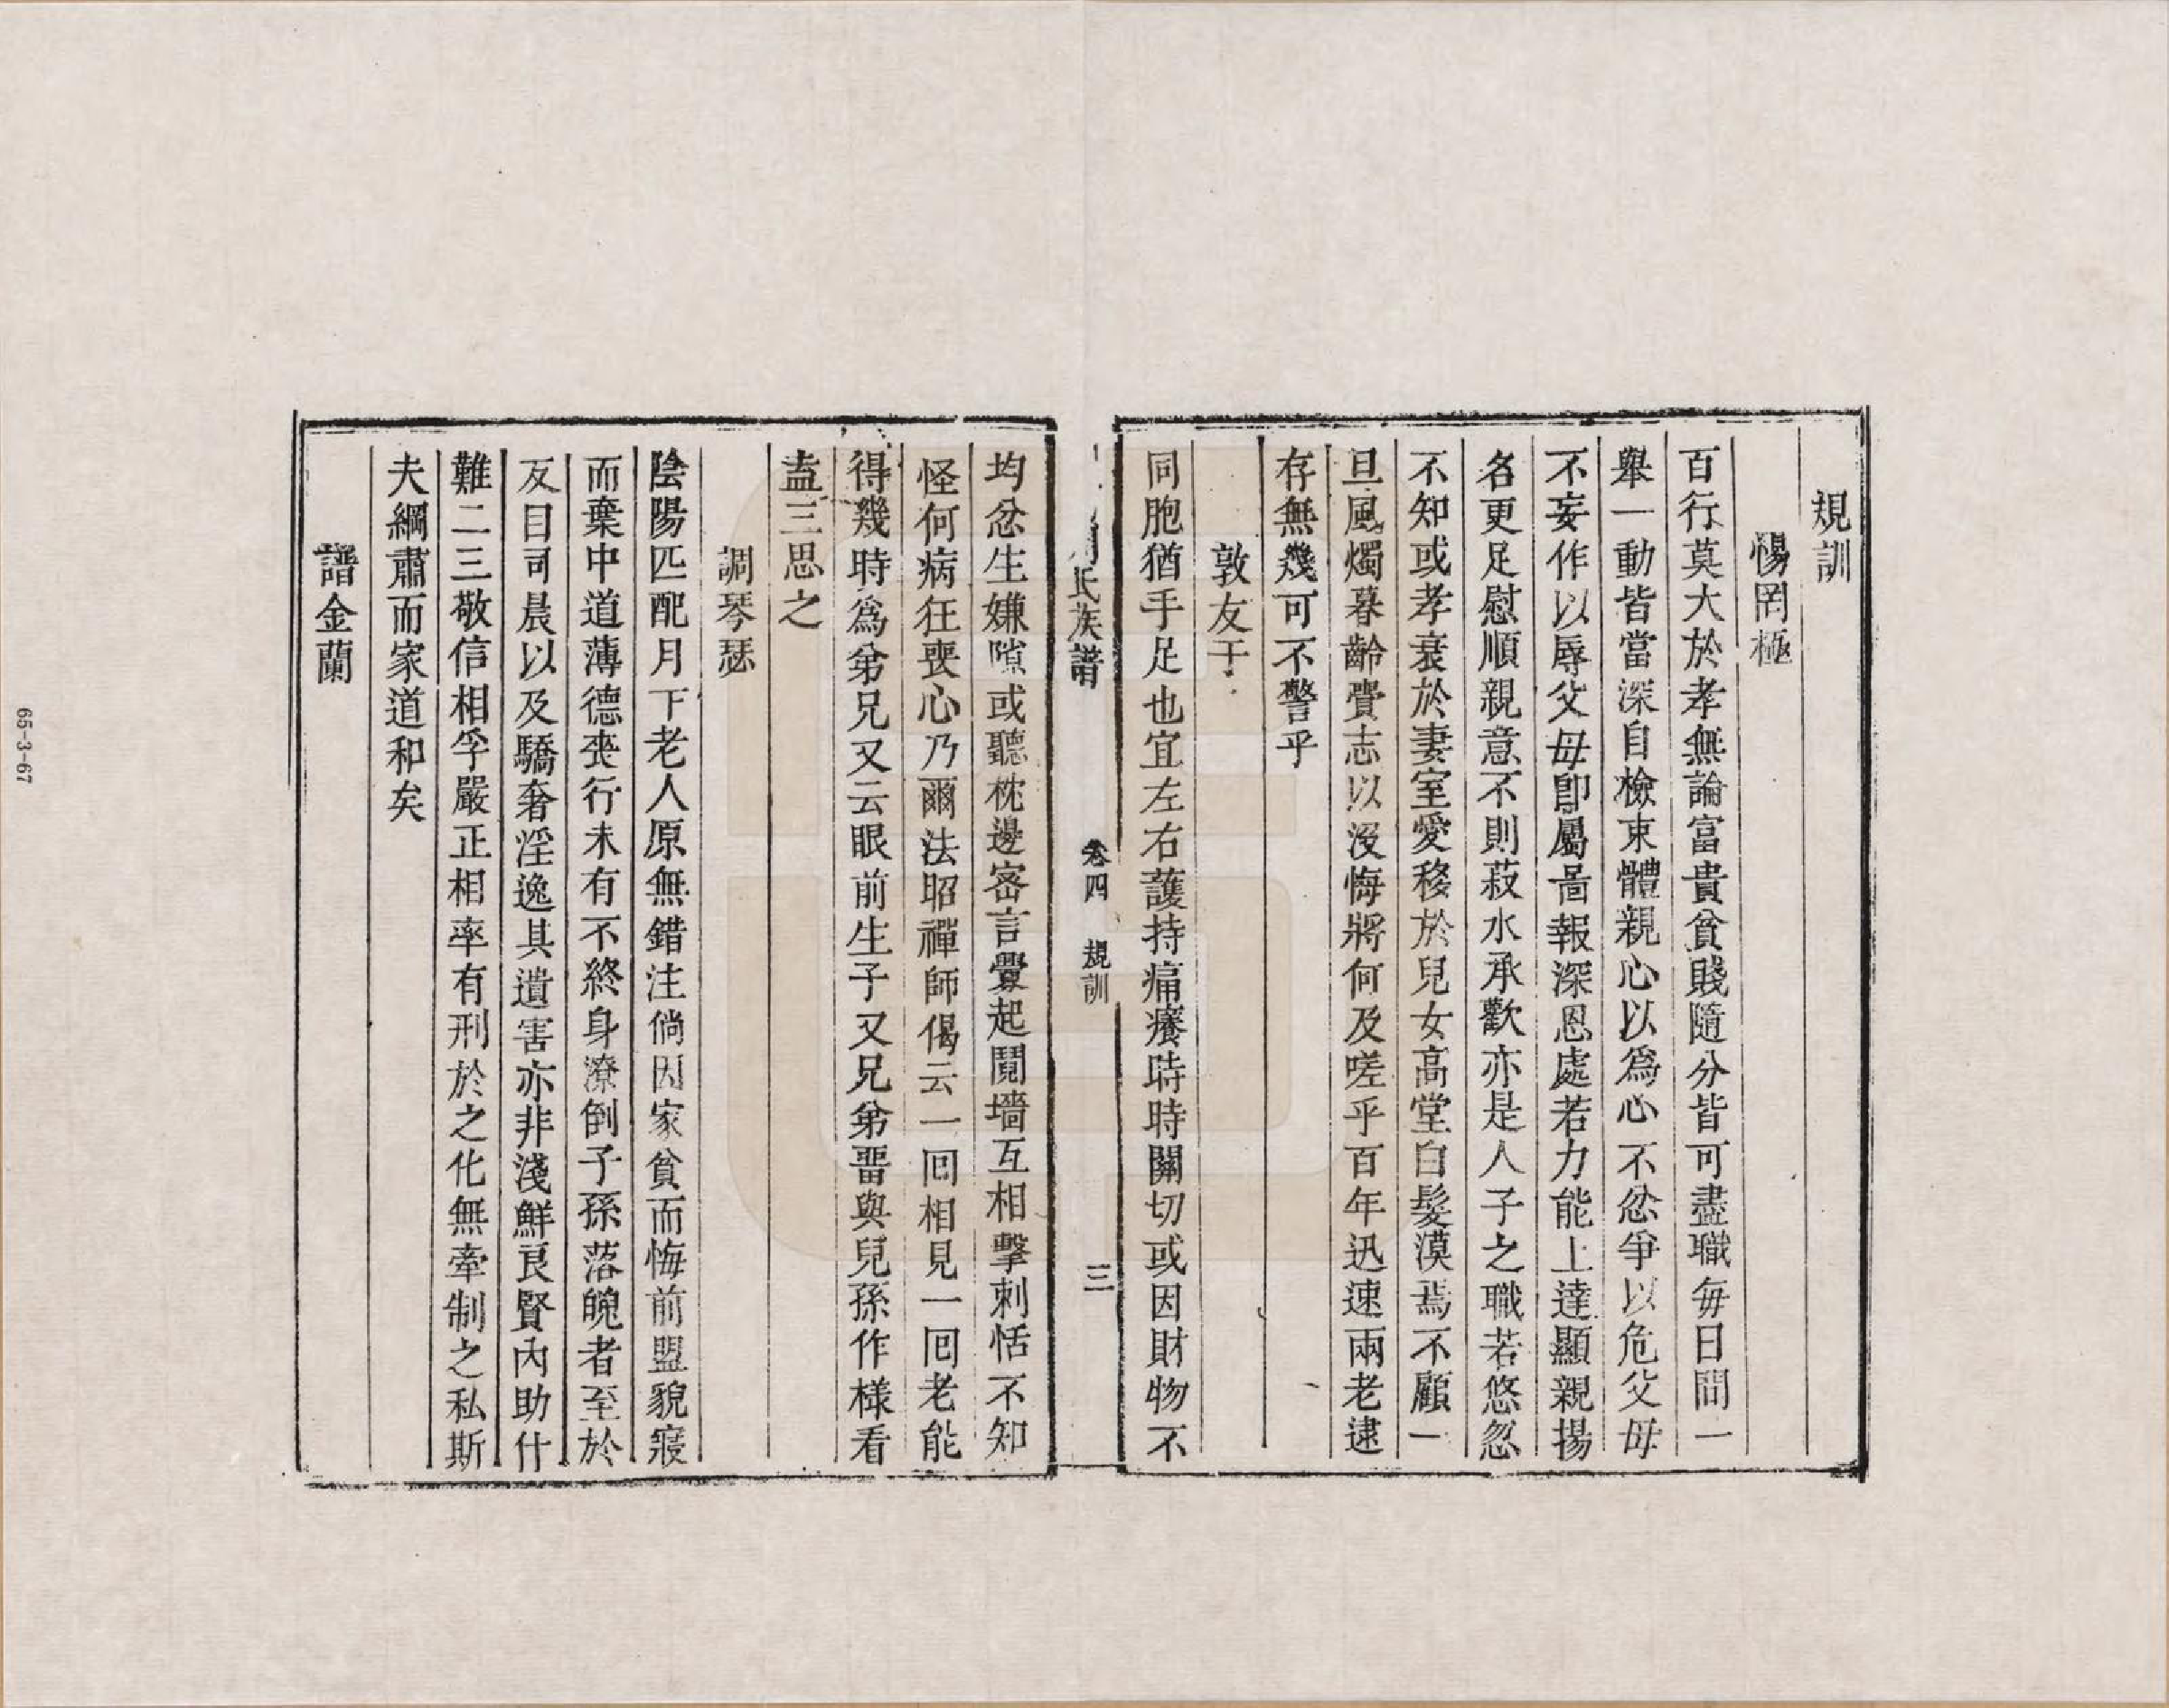 規訓
惕罔極
百行莫大於孝無論富貴貧賤隨分皆可盡職每日問一
舉一動皆當深自檢束體親心以為心不忿爭以危父母
不妄作以辱父母卽屬啚報深恩處若力能上達顯親揚
名更足慰順親意不則菽水承歡亦是人子之職若悠忽
不知或孝衰於妻室愛移於兒女高堂白髮漠焉不顧一
旦風燭暮齡賫志以沒悔將何及嗟乎百年迅速兩老逮
存無幾可不警乎
敦友于
同胞猶手足也宜左右護持痛癢時時關切或因財物不
均忿生嫌隙或聽枕邊密言釁起鬩墻互相擊刺恬不知
怪何病狂喪心乃爾法昭禪師偈云一囘相見一囘老能
得幾時為弟兄又云眼前生子又兄弟畱與兒孫作樣看
盍三思之
調琴瑟
陰陽匹配月下老人原無錯注倘因家貧而悔前盟貌寢
而棄中道薄德喪行未有不終身潦倒子孫落魄者至於
反目司晨以及驕奢淫逸其遺害亦非淺鮮良賢內助什
難二三敬信相孚嚴正相率有刑於之化無牽制之私斯
夫綱肅而家道和矣
譜金蘭
氏族譜
卷四 規訓
三
65-3-67